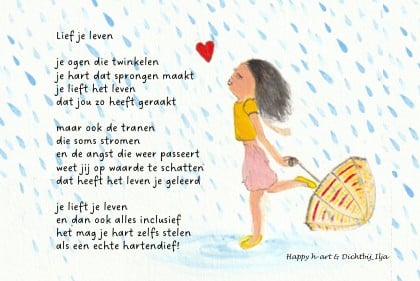 Lief je leven
je ogen die twinkelen
je hart dat sprongen maakt
je lieft het leven
dat jou zo heeft geraakt
maar ook de tranen
die soms stromen
en de angst die weer passeert
weet jij op waarde te schatten
dat heeft het leven je geleerd
je lieft je leven
en dan ook alles inclusief
het mag je hart zelfs stelen
als een echte hartendief!
Happy h-art & Dichtbij_Ilja